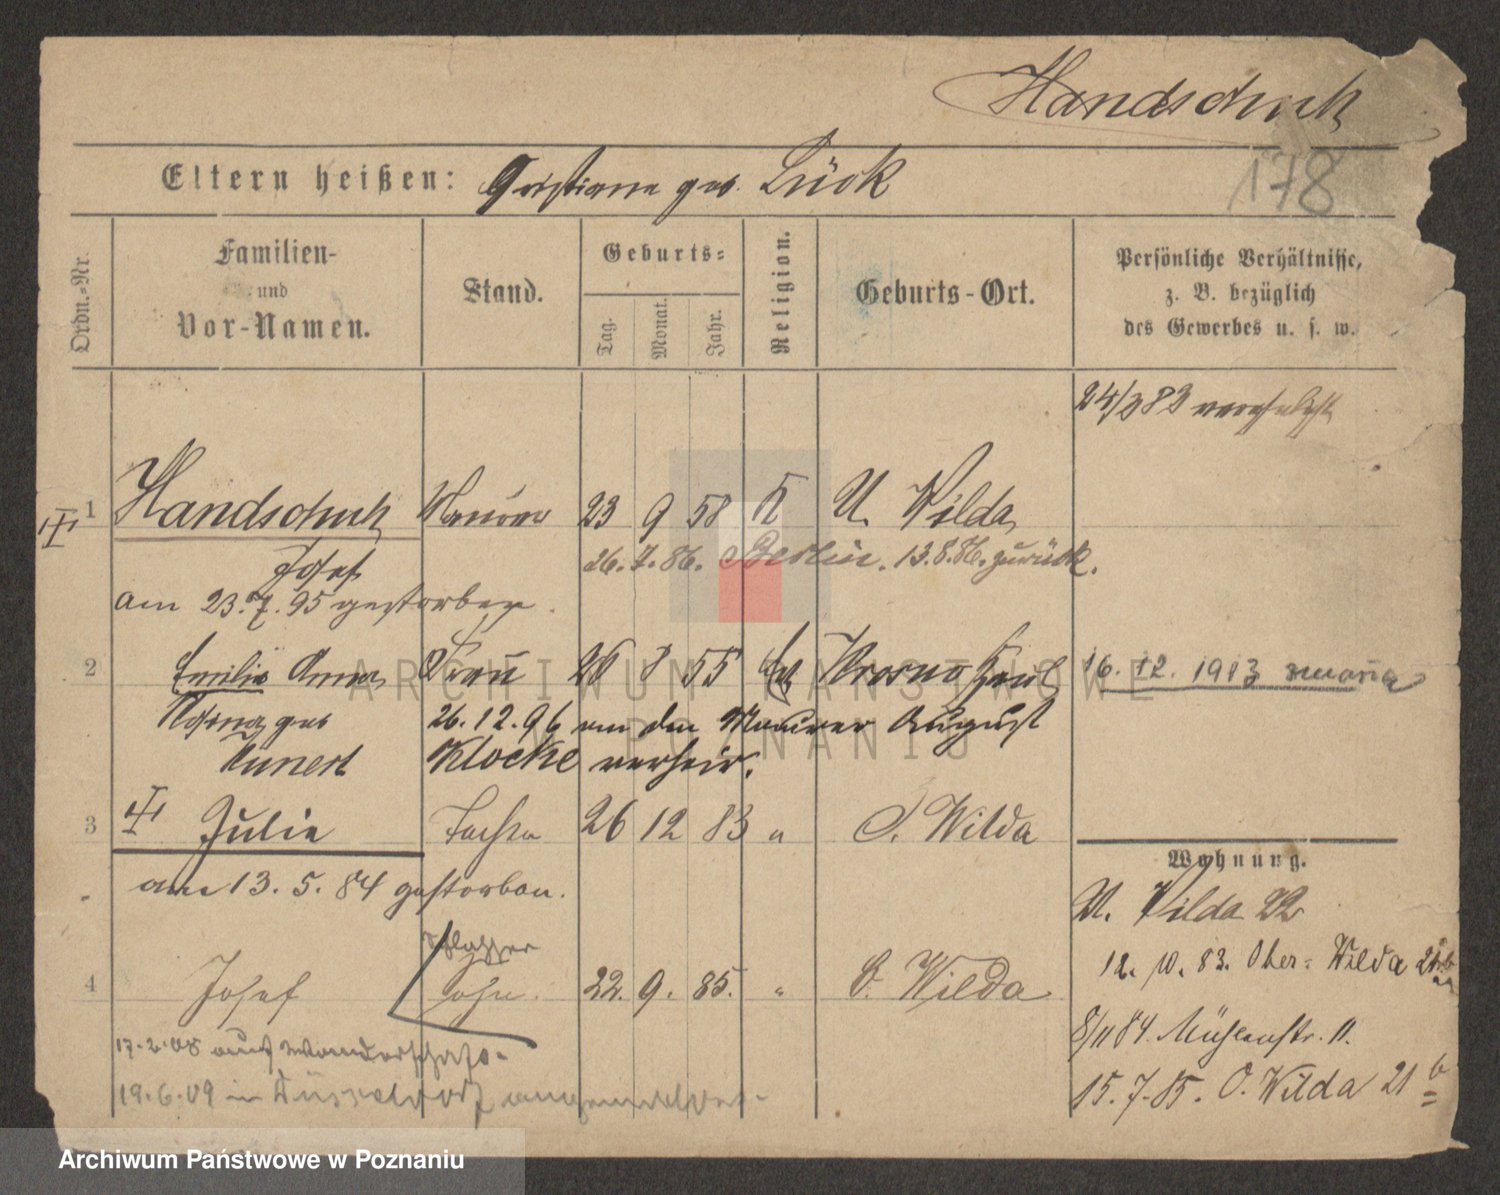 Handschuh
178
Eltern heißen: Christiane geb. Lück
Ordn.-Nr.
Familien- und Vor-Namen.
Stand.
Geburts-
Tag. Monat. Jahr.
Religion.
Geburts-Ort.
Persönliche Verhältnisse, z. B. bezüglich des Gewerbes u. s. w.
24/3 83
1 Handschuh Maurer 23 9 58 K U. Wilda
Josef 26.7.86. Berlin. 13.8.86. zurück.
am 23.7.95 gestorben.
2 Emilie Anna Frau 26 8 55 Krosno 16.12. 1913
geb 26.12.96 an den Maurer August
Kunert Klocke verheir.
3 Julie Tochter 26 12 83 " O. Wilda
am 13.5.84 gestorben.
Wohnung.
U. Wilda 22
12.10.83. Ober-Wilda
4 Josef Sohn. 22. 9. 85. " O. Wilda
8/11 84. Mühlenstr. 11.
17.2.08 auf Wanderschaft
15.7.85. O. Wilda 21 b
19.6.09 in Düsseldorf
ARCHIWUM PAŃSTWOWE
W POZNANIU
Archiwum Państwowe w Poznaniu